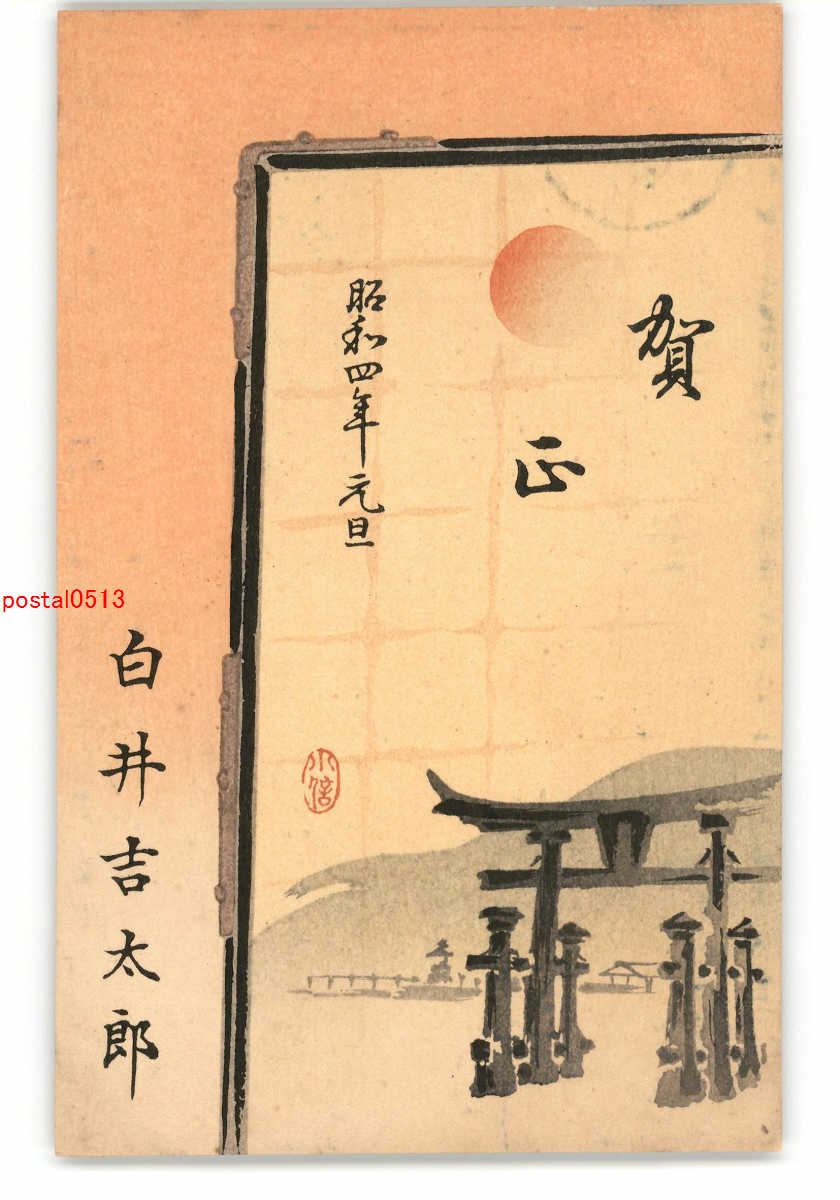 賀
正
昭和四年元旦
白井吉太郎
postal0513